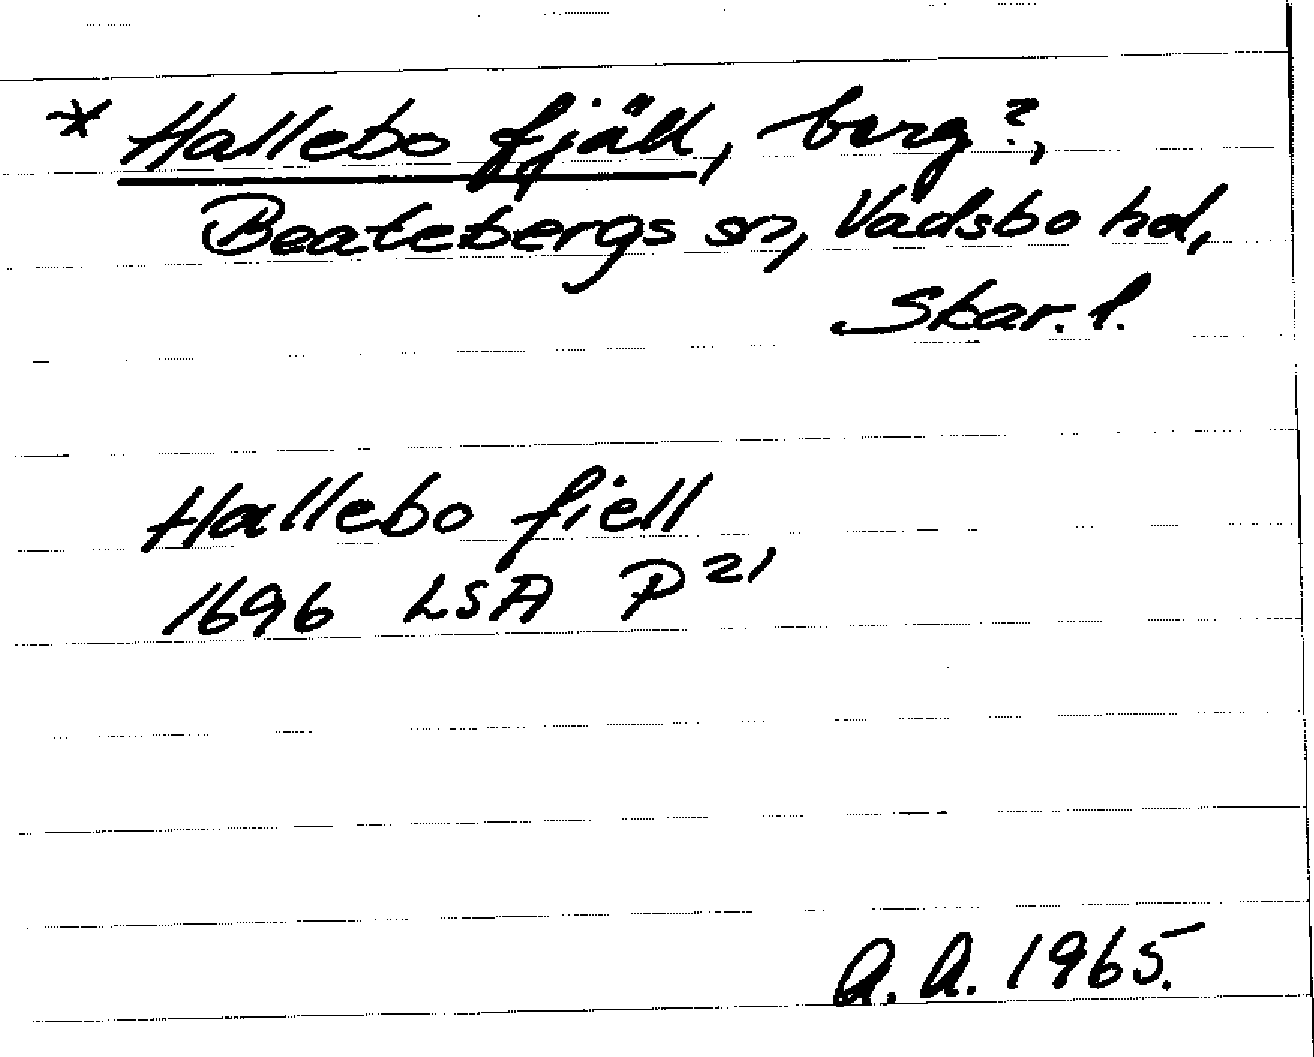 * Hallebo fjäll, berg?,
Beatebergs sn, Vadsbo hd,
Skar. l.
Hallebo fiell
1696 LSA P 21
A. A. 1965.